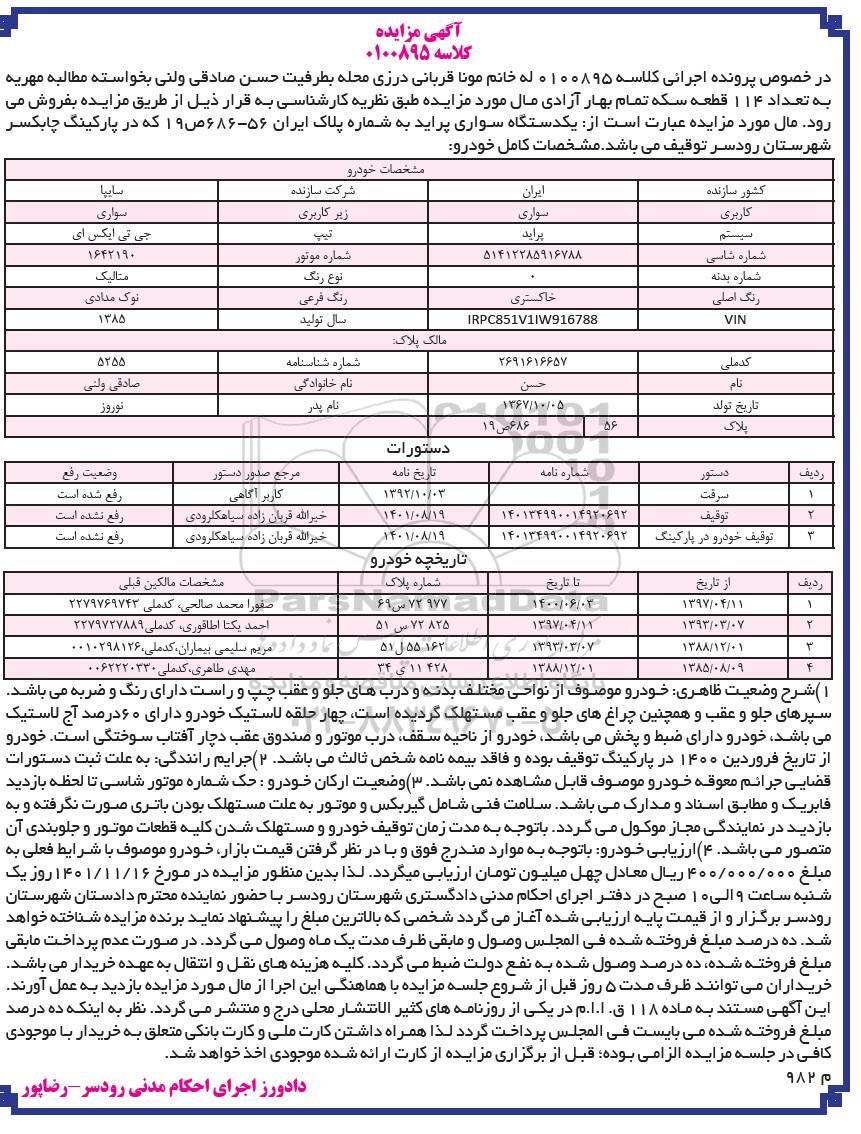 آگهی مزایده
کلاسه ۰۱۰۰۸۹۵
در خصوص پرونده اجرائی کلاسه ۰۱۰۰۸۹۵ له خانم مونا قربانی درزی محله بطرفیت حسن صادقی ولنی بخواسته مطالبه مهریه
به تعداد ۱۱۴ قطعه سکه تمام بهار آزادی مال مورد مزایده طبق نظریه کارشناسی به قرار ذیل از طریق مزایده بفروش می
رود. مال مورد مزایده عبارت است از: یکدستگاه سواری پراید به شماره پلاک ایران ۵۶-۶۸۶ص۱۹ که در پارکینگ چابکسر
شهرستان رودسر توقیف می باشد.مشخصات کامل خودرو:
مشخصات خودرو
کشور سازنده ایران شرکت سازنده سایپا
کاربری سواری زیر کاربری سواری
سیستم پراید تیپ جی تی ایکس ای
شماره شاسی ۵۱۴۱۲۲۸۵۹۱۶۷۸۸ شماره موتور ۱۶۴۲۱۹۰
شماره بدنه ۰ نوع رنگ متالیک
رنگ اصلی خاکستری رنگ فرعی نوک مدادی
VIN IRPC851V1IW916788 سال تولید ۱۳۸۵
مالک پلاک:
کدملی ۲۶۹۱۶۱۶۶۵۷ شماره شناسنامه ۵۲۵۵
نام حسن نام خانوادگی صادقی ولنی
تاریخ تولد ۱۳۶۷/۱۰/۰۵ نام پدر نوروز
پلاک ۵۶ ۶۸۶ص۱۹
دستورات
ردیف دستور شماره نامه تاریخ نامه مرجع صدور دستور وضعیت رفع
۱ سرقت ۱۳۹۲/۱۰/۰۳ کاربر آگاهی رفع شده است
۲ توقیف ۱۴۰۱۳۴۹۹۰۰۱۴۹۲۰۶۹۲ ۱۴۰۱/۰۸/۱۹ خیرالله قربان زاده سیاهکلرودی رفع نشده است
۳ توقیف خودرو در پارکینگ ۱۴۰۱۳۴۹۹۰۰۱۴۹۲۰۶۹۲ ۱۴۰۱/۰۸/۱۹ خیرالله قربان زاده سیاهکلرودی رفع نشده است
تاریخچه خودرو
ردیف از تاریخ تا تاریخ شماره پلاک مشخصات مالکین قبلی
۱ ۱۳۹۷/۰۴/۱۱ ۱۴۰۰/۰۶/۰۳ ۹۷۷ ۷۲ س۶۹ صفورا محمد صالحی، کدملی ۲۲۷۹۷۶۹۷۴۳
۲ ۱۳۹۳/۰۳/۰۷ ۱۳۹۷/۰۴/۱۱ ۸۲۵ ۷۲ س ۵۱ احمد یکتا اطاقوری، کدملی۲۲۷۹۷۲۷۸۸۹
۳ ۱۳۸۸/۱۲/۰۱ ۱۳۹۳/۰۳/۰۷ ۱۶۲ ۵۵ ل۵۱ مریم سلیمی بیماران،کدملی،۰۰۱۰۲۹۸۱۲۶
۴ ۱۳۸۵/۰۸/۰۹ ۱۳۸۸/۱۲/۰۱ ۴۲۸ ۱۱ ي ۳۴ مهدی طاهری،کدملی۰۰۶۲۲۲۰۳۳۰
ParsNamadData
۰۲۱-۸۸۳۴۹۶۷۰-۵
۱)شرح وضعیت ظاهری: خودرو موصوف از نواحی مختلف بدنه و درب های جلو و عقب چپ و راست دارای رنگ و ضربه می باشد.
سپرهای جلو و عقب و همچنین چراغ های جلو و عقب مستهلک گردیده است، چهار حلقه لاستیک خودرو دارای ۶۰درصد آج لاستیک
می باشد، خودرو دارای ضبط و پخش می باشد، خودرو از ناحیه سقف، درب موتور و صندوق عقب دچار آفتاب سوختگی است. خودرو
از تاریخ فروردین ۱۴۰۰ در پارکینگ توقیف بوده و فاقد بیمه نامه شخص ثالث می باشد. ۲)جرایم رانندگی: به علت ثبت دستورات
قضایی جرائم معوقه خودرو موصوف قابل مشاهده نمی باشد. ۳)وضعیت ارکان خودرو : حک شماره موتور شاسی تا لحظه بازدید
فابریک و مطابق اسناد و مدارک می باشد. سلامت فنی شامل گیربکس و موتور به علت مستهلک بودن باتری صورت نگرفته و به
بازدید در نمایندگی مجاز موکول می گردد. باتوجه به مدت زمان توقیف خودرو و مستهلک شدن کلیه قطعات موتور و جلوبندی آن
متصور می باشد. ۴)ارزیابی خودرو: باتوجه به موارد مندرج فوق و با در نظر گرفتن قیمت بازار، خودرو موصوف با شرایط فعلی به
مبلغ ۴۰۰/۰۰۰/۰۰۰ ریال معادل چهل میلیون تومان ارزیابی میگردد. لذا بدین منظور مزایده در مورخ ۱۴۰۱/۱۱/۱۶روز یک
شنبه ساعت ۹الی۱۰ صبح در دفتر اجرای احکام مدنی دادگستری شهرستان رودسر با حضور نماینده محترم دادستان شهرستان
رودسر برگزار و از قیمت پایه ارزیابی شده آغاز می گردد شخصی که بالاترین مبلغ را پیشنهاد نماید برنده مزایده شناخته خواهد
شد. ده درصد مبلغ فروخته شده فی المجلس وصول و مابقی ظرف مدت یک ماه وصول می گردد. در صورت عدم پرداخت مابقی
مبلغ فروخته شده، ده درصد وصول شده به نفع دولت ضبط می گردد. کلیه هزینه های نقل و انتقال به عهده خریدار می باشد.
خریداران می توانند ظرف مدت ۵ روز قبل از شروع جلسه مزایده با هماهنگی این اجرا از مال مورد مزایده بازدید به عمل آورند.
این آگهی مستند به ماده ۱۱۸ ق. ا.ا.م در یکی از روزنامه های کثیر الانتشار محلی درج و منتشر می گردد. نظر به اینکه ده درصد
مبلغ فروخته شده می بایست فی المجلس پرداخت گردد لذا همراه داشتن کارت ملی و کارت بانکی متعلق به خریدار با موجودی
کافی در جلسه مزایده الزامی بوده؛ قبل از برگزاری مزایده از کارت ارائه شده موجودی اخذ خواهد شد.
م ۹۸۲
دادورز اجرای احکام مدنی رودسر-رضاپور